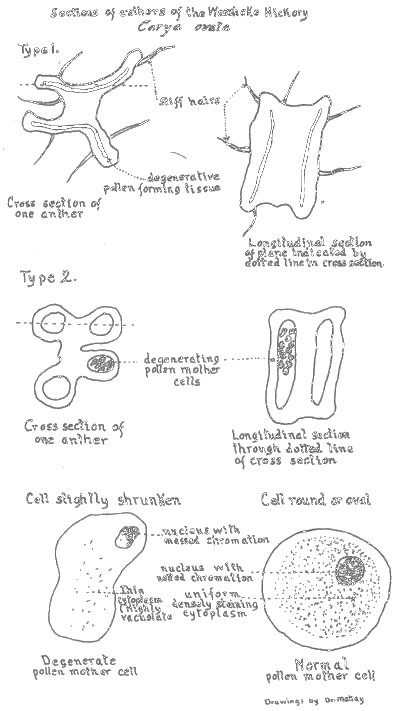 Sections of anthers of the Weschcke Hickory
Carya ovata
Type 1.
stiff hairs
degenerative
pollen forming tissue
Cross section of
one anther
Longitudinal section
of plane indicated by
dotted line in cross section
Type 2.
degenerating
pollen mother
cells
Cross section of
one anther
Longitudinal section
through dotted line
of cross section
Cell slightly shrunken
Cell round or oval
nucleus with
massed chromation
nucleus with
netted chromation
Thin
cytoplasm
(highly
vacuolate
uniform
densely staining
cytoplasm
Degenerate
pollen mother cell
Normal
pollen mother cell
Drawings by Dr. McKay